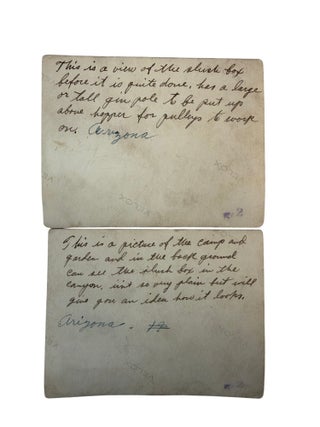 This is a view of the slush box
before it is quite done, has a large
or tall gin pole to be put up
above hopper for pulleys to work
on. Arizona
VELOX
2
This is a picture of the camp and
garden and in the back ground
can see the slush box in the
canyon, isnt so very plain but will
give you an idea how it looks.
Arizona.
VELOX